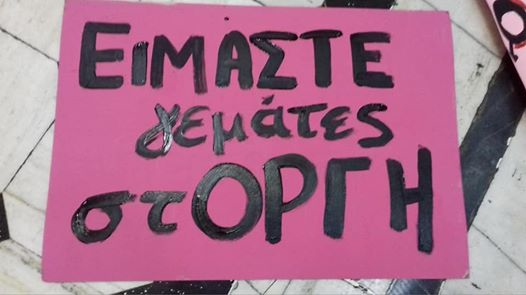 ΕΙΜΑΣΤΕ
γεμάτες
στΟΡΓΗ